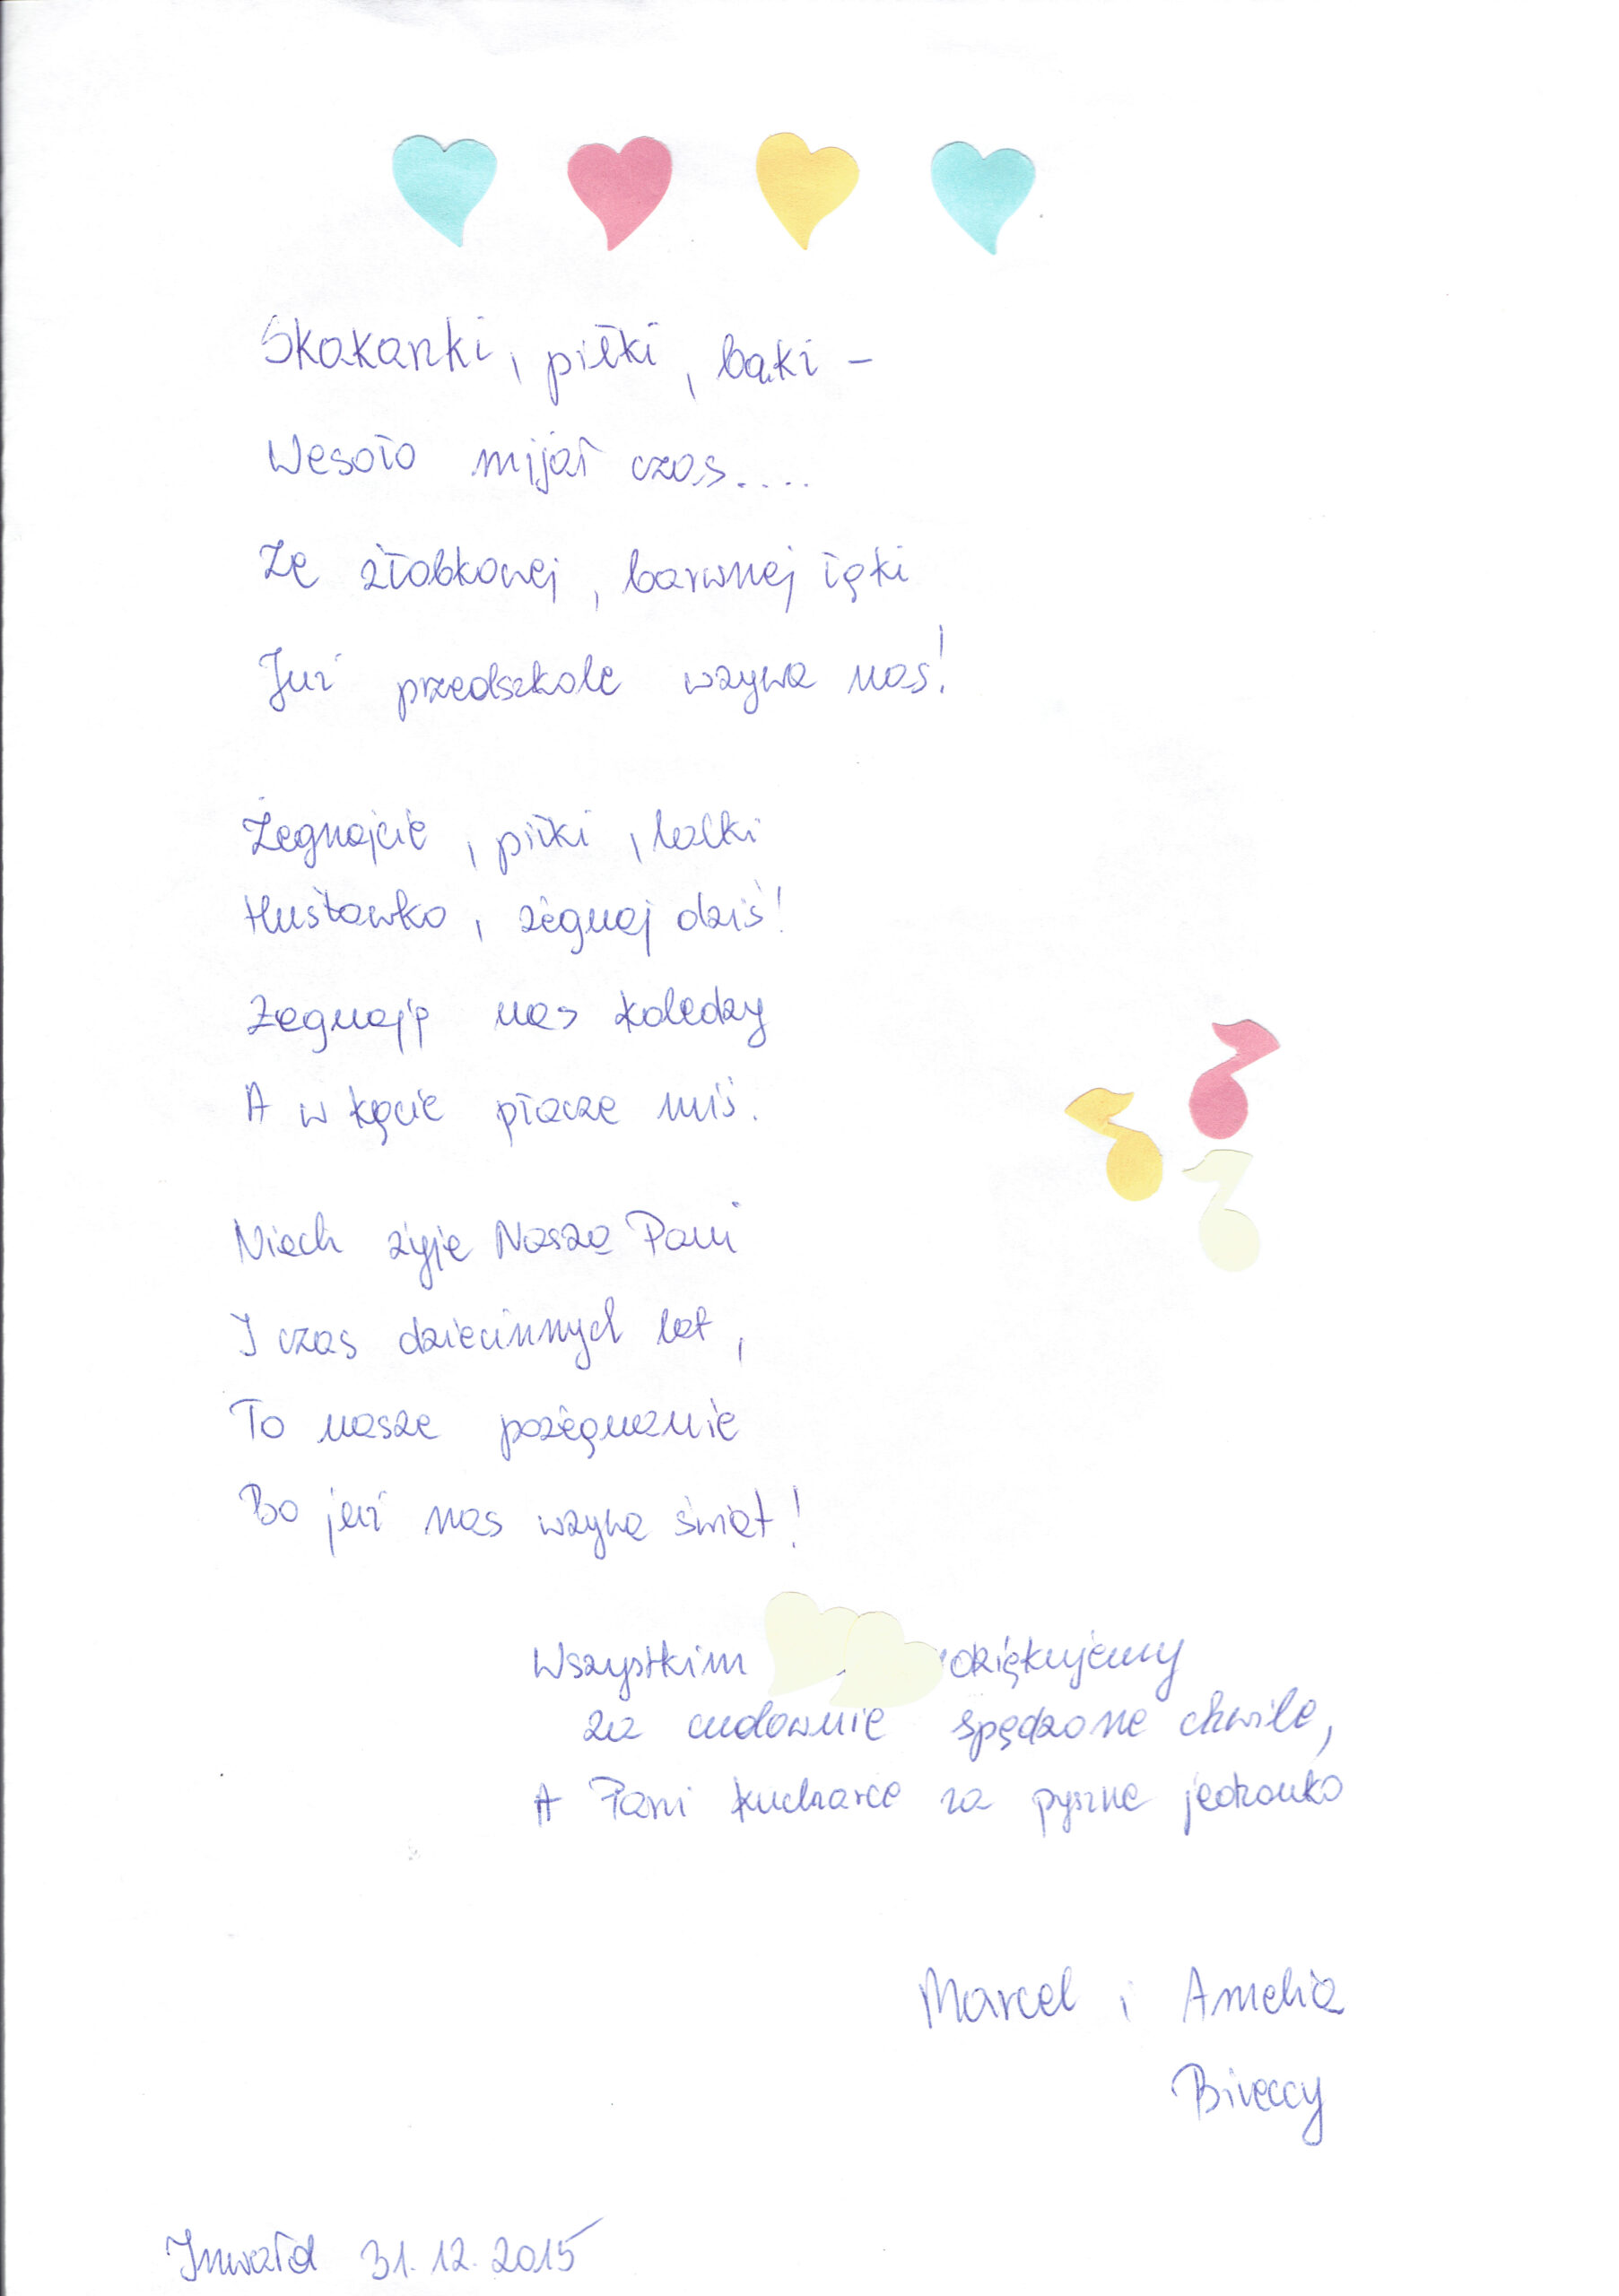 Skakanki, piłki, bąki -
Wesoło mijał czas....
Ze żłobkowej, barwnej łąki
Już przedszkole wzywa nas!
Żegnajcie, piłki, lalki
Huśtawko, żegnaj dziś!
Żegnają nas koledzy
A w kącie płacze miś.
Niech żyje Nasza Pani
I czas dziecinnych lat,
To nasze pożegnanie
Bo już nas wzywa świat!
Wszystkim dziękujemy
za cudownie spędzone chwile,
A Pani kucharce za pyszne jedzonko
Marcel i Amelia
Inwałd 31.12.2015